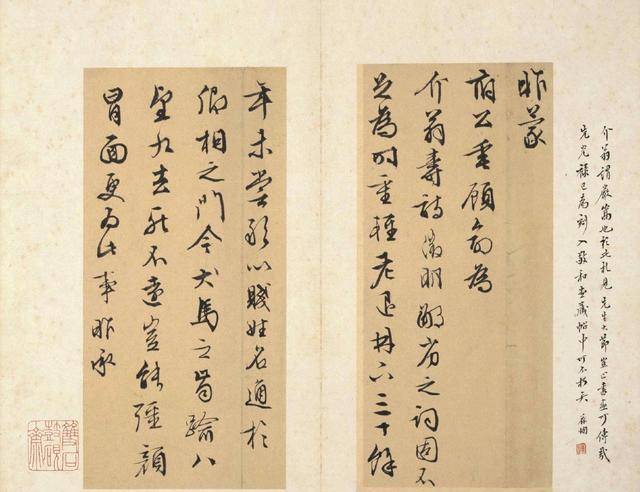 介翁謂嚴嵩也於此札見先生大節豈止書畫可傳哉
先光祿已為刻入敬和堂藏帖中可不朽矣
昨蒙
府公垂顧命為
介翁壽詩徵明鄙劣之詞固不
足為時重輕老退林下三十餘
年未嘗敢以賤姓名通於
卿相之門今犬馬之齒踰八
望九去死不遠豈能強顏
冒面更為此事昨承